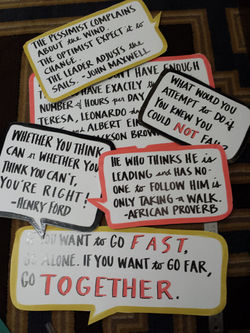 THE PESSIMIST COMPLAINS
ABOUT the WIND.
THE OPTIMIST EXPECT it to
CHANGE.
THE LEADER ADJUSTS the
SAILS. -JOHN MAXWELL
HAVE ENOUGH
HAVE EXACTLY
NUMBER of HOURS per DAY
TERESA, LEONARDO
ALBERT
BROWN
WHAT WOULD YOU
ATTEMPT to DO if
YOU KNEW YOU
COULD NOT
WHETHER YOU THINK
CAN or WHETHER YOU
THINK YOU CAN'T,
YOU'RE RIGHT!
-HENRY FORD
HE WHO THINKS HE is
LEADING and HAS NO-
ONE to FOLLOW HIM is
ONLY TAKING a WALK.
-AFRICAN PROVERB
YOU WANT to GO FAST,
ALONE. IF YOU WANT to GO FAR,
GO TOGETHER.